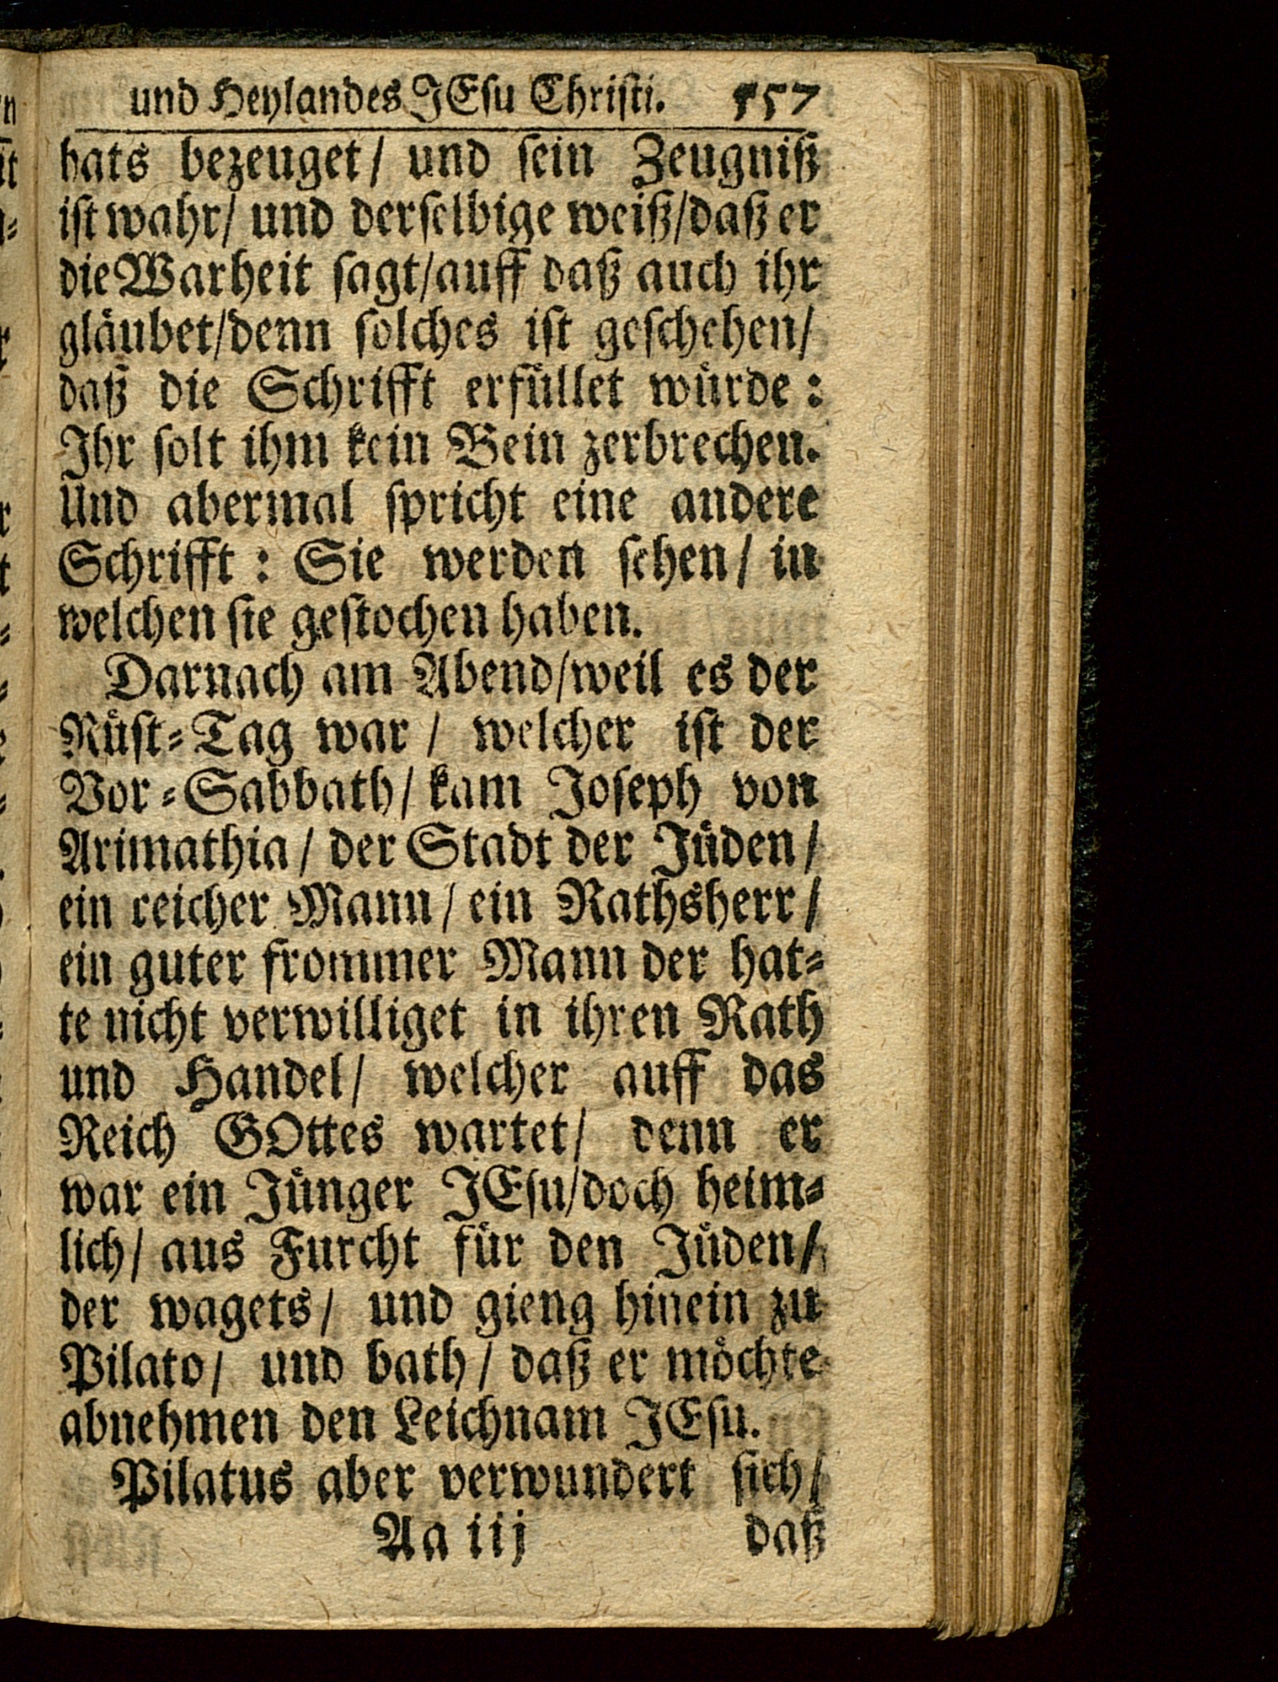 und Heylandes JEsu Christi. 557
hats bezeuget/ und sein Zeugniß
ist wahr/ und derselbige weiß/daß er
die Warheit sagt/auff daß auch ihr
gläubet/denn solches ist geschehen/
daß die Schrifft erfüllet würde:
Ihr solt ihm kein Bein zerbrechen.
Und abermal spricht eine andere
Schrifft: Sie werden sehen/ in
welchen sie gestochen haben.
Darnach am Abend/weil es der
Rüst-Tag war/ welcher ist der
Vor-Sabbath/ kam Joseph von
Arimathia/ der Stadt der Jüden/
ein reicher Mann/ ein Rathsherr/
ein guter frommer Mann der hat-
te nicht verwilliget in ihren Rath
und Handel/ welcher auff das
Reich GOttes wartet/ denn er
war ein Jünger JEsu/doch heim-
lich/ aus Furcht für den Jüden/
der wagets/ und gieng hinein zu
Pilato/ und bath/ daß er möchte
abnehmen den Leichnam JEsu.
Pilatus aber verwundert sich/
Aa iij daß